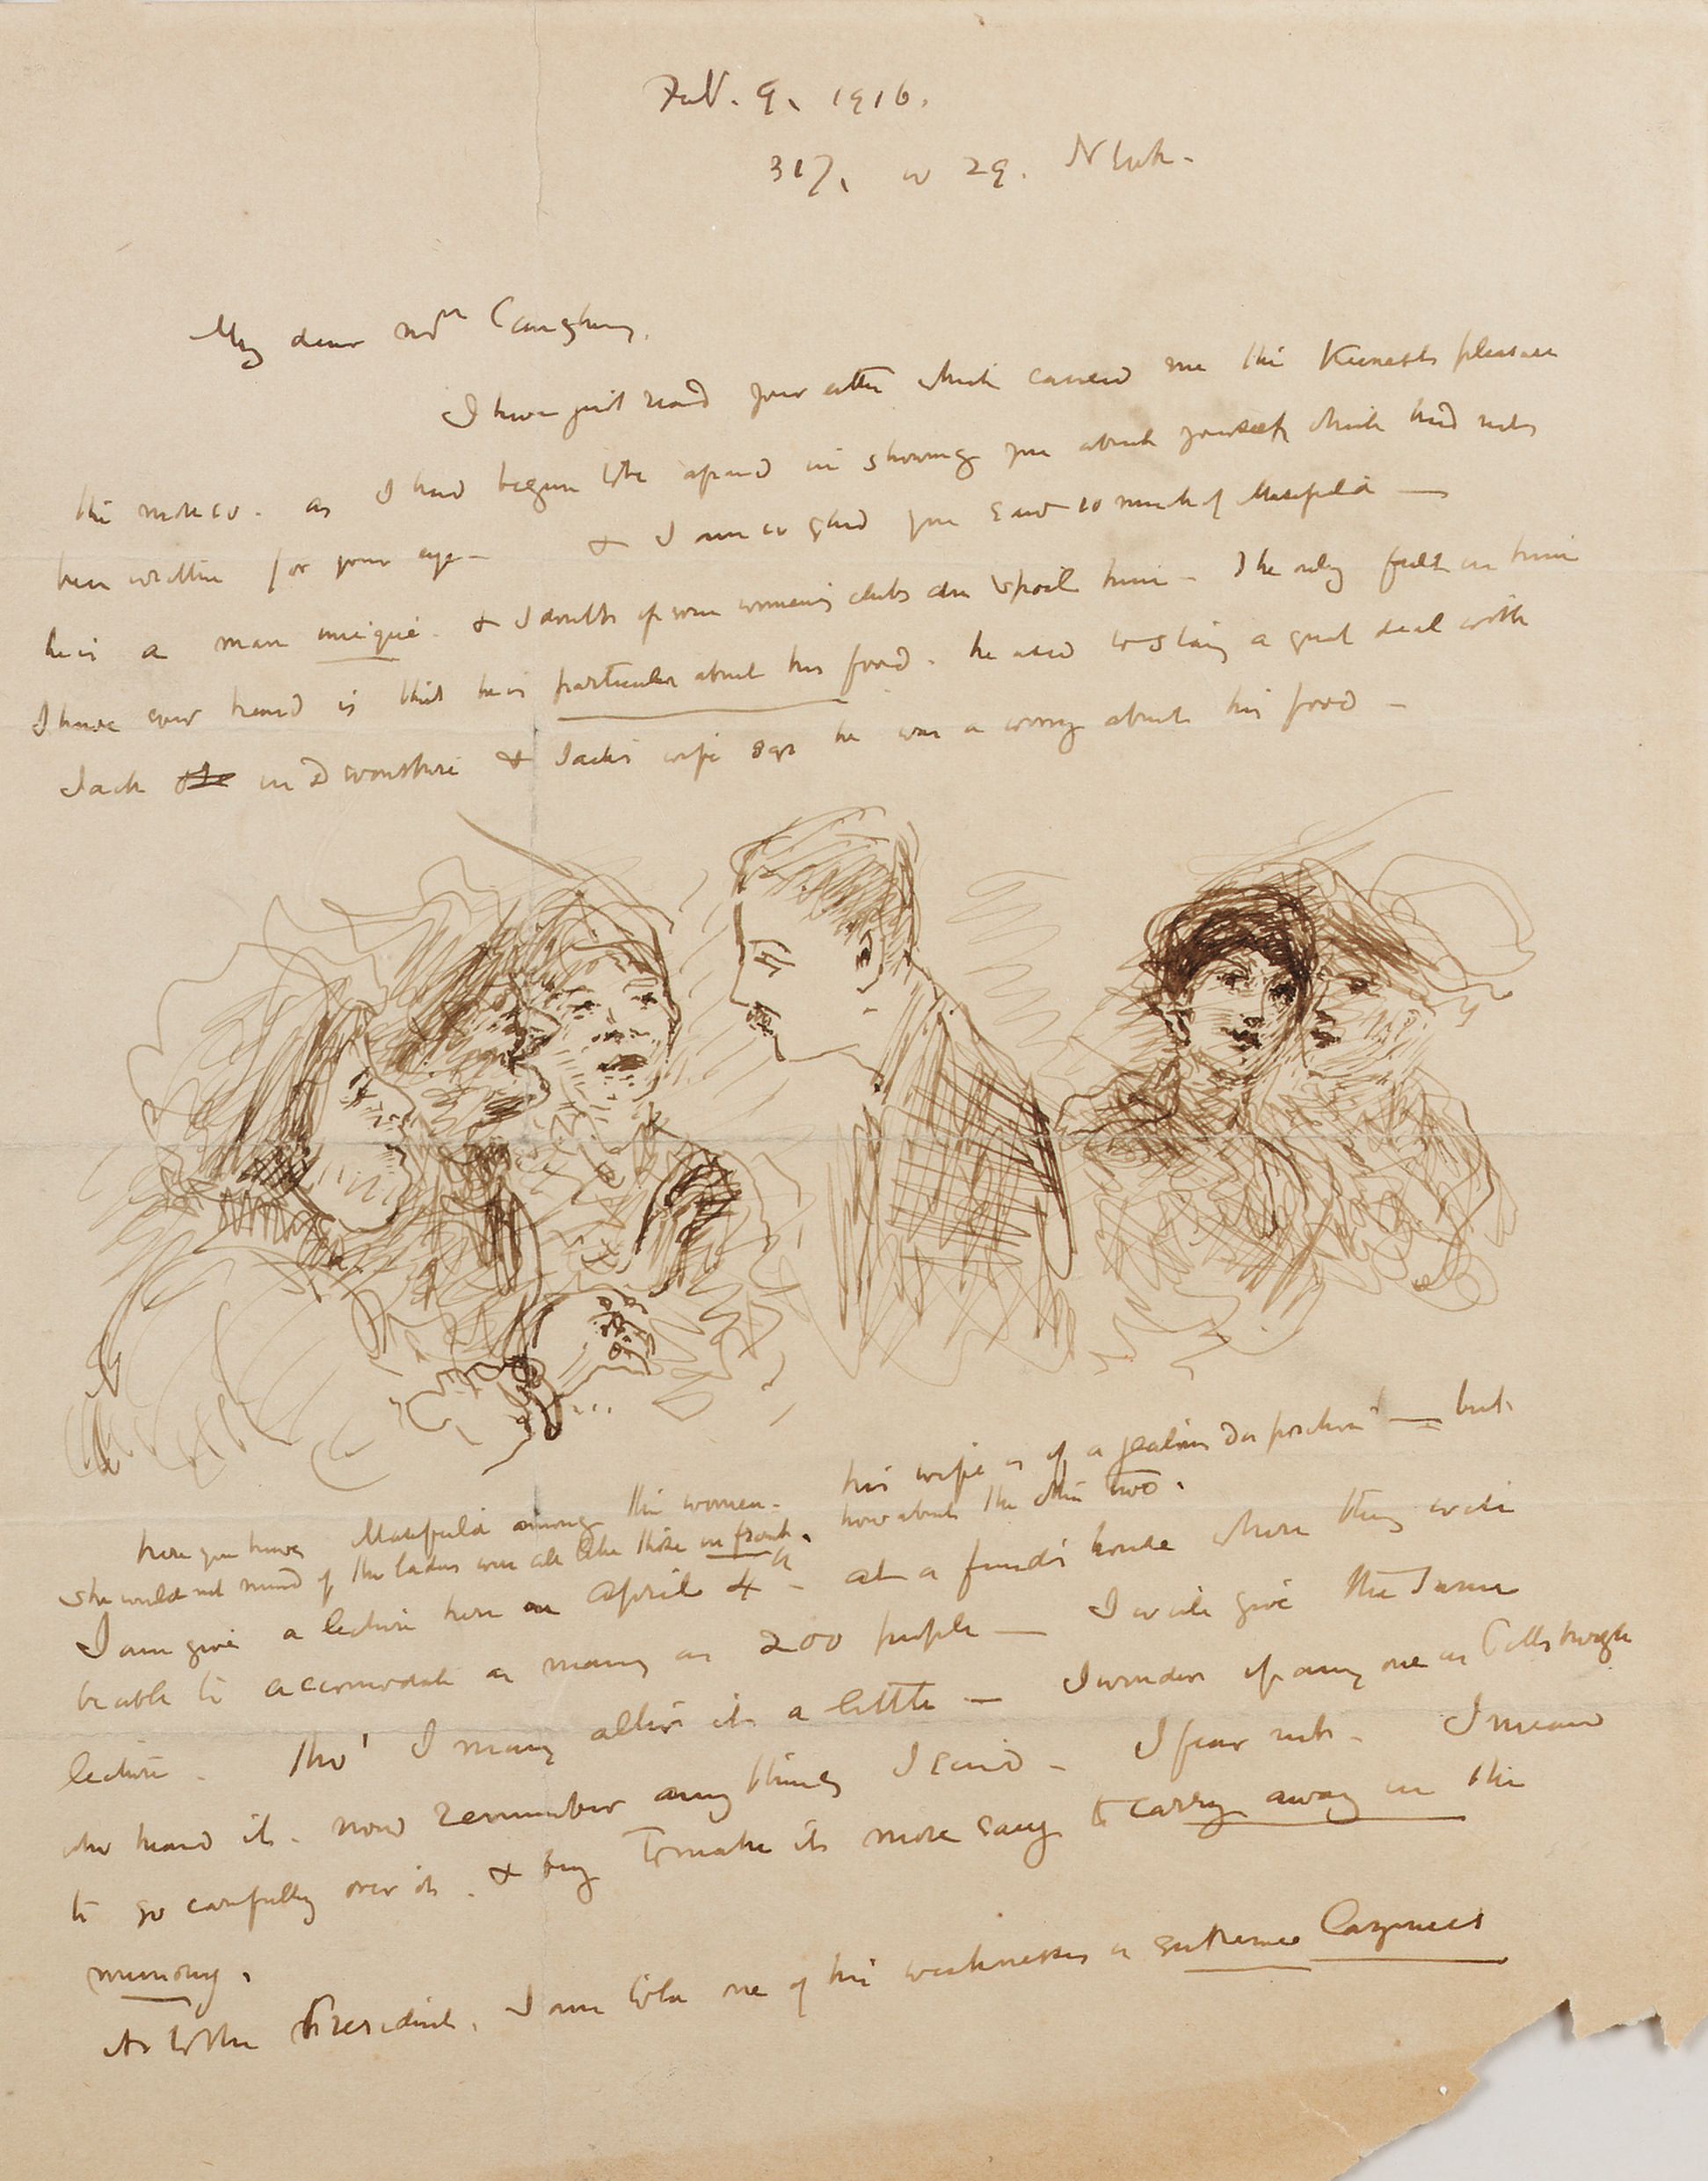 Feb. 9. 1916.
317. W 29. N York.
My dear Mrs Caughey.
I have just read your letter which caused me the keenest pleasure
the more so. as I had begun to be afraid in showing you about yourself which had not
been written for your eye — & I am so glad you saw so much of Masefield —
he is a man unique. & I doubt if some women's clubs can spoil him – The only fault in him
I have ever heard is that he is particular about his food. he used to stay a great deal with
Jack in Devonshire & Jack's wife says he was a worry about his food –
here you have Masefield among the women – his wife is of a jealous disposition — but
she would not mind if the ladies were all like those in front. how about the other two.
I am give a lecture here on April 4th – at a friend's house where they will
be able to accomodate as many as 200 people — I will give the same
lecture – tho' I may alter it a little — I wonder if any one in Pittsburgh
who heard it. now remember any thing I said – I fear not – I mean
to go carefully over it. & try to make it more easy to carry away in the
memory.
As to the President. I am told one of his weaknesses is extreme Laziness